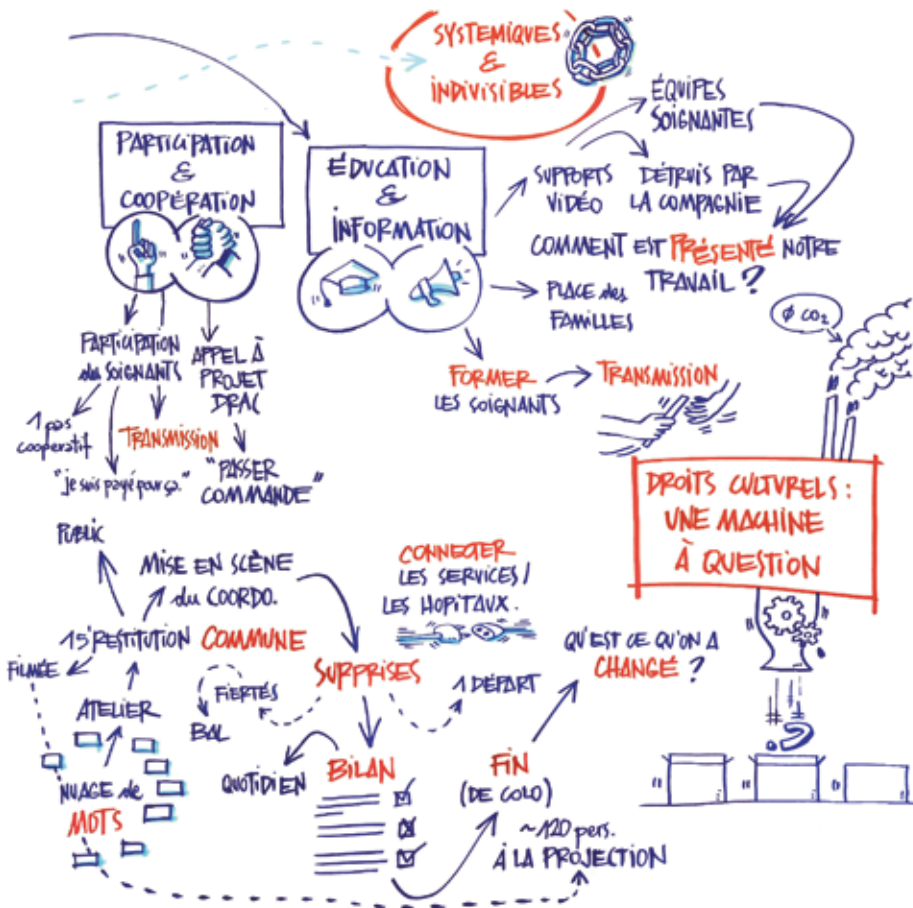 SYSTEMIQUES
&
INDIVISIBLES
PARTICIPATION
&
COOPÉRATION
ÉDUCATION
&
INFORMATION
SUPPORTS
VIDÉO
ÉQUIPES
SOIGNANTES
DÉTRUIS PAR
LA COMPAGNIE
COMMENT EST PRÉSENTÉ NOTRE
TRAVAIL ?
PLACE des
FAMILLES
FORMER
LES SOIGNANTS
TRANSMISSION
Ø CO2
PARTICIPATION
des SOIGNANTS
APPEL À
PROJET
DRAC
1 pas
cooperatif
TRANSMISSION
"je suis payé pour ça."
"PASSER
COMMANDE"
DROITS CULTURELS :
UNE MACHINE
À QUESTION
PUBLIC
MISE EN SCÈNE
du COORDO.
CONNECTER
LES SERVICES/
LES HOPITAUX.
15' RESTITUTION COMMUNE
FILMÉE
SURPRISES
FIERTÉS
BAL
1 DÉPART
QU'EST CE QU'ON A
CHANGÉ ?
ATELIER
NUAGE de
MOTS
QUOTIDIEN
BILAN
FIN
(DE COLO)
~120 pers.
À LA PROJECTION